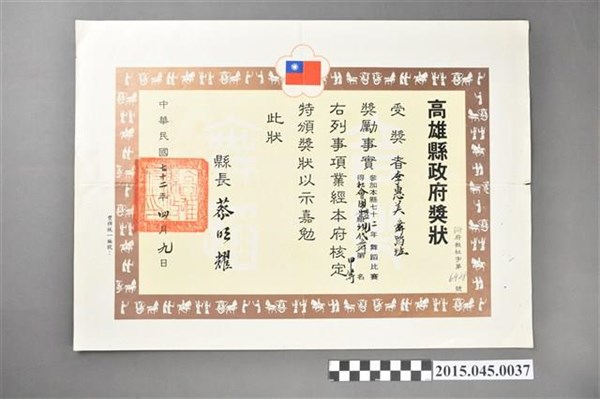 高雄縣政府獎狀
府教社字第 號
受獎者李惠美舞蹈社
獎勵事實 參加本縣七十二年舞蹈比賽
得社會團體組現代舞第 名
甲等
右列事項業經本府核定
特頒獎狀以示嘉勉
此狀
縣長 蔡明耀
中華民國七十二年四月九日
2015.045.0037